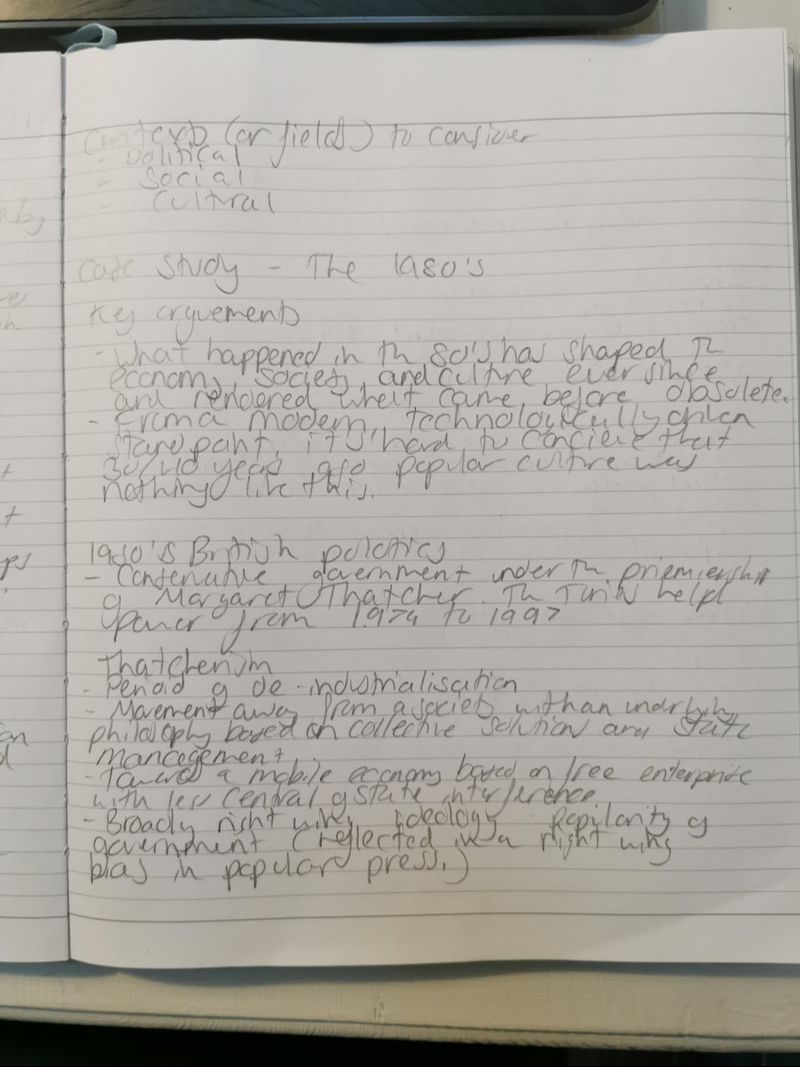 Contexts (or fields) to consider
- Political
- Social
- Cultural
Case Study - The 1980's
Key arguements
- What happened in th 80's has shaped th
economy, society, and culture ever since
and rendered what came before obsolete.
- From a modern, technologically driven
standpoint, its hard to concieve that
30/40 years ago popular culture was
nothing like this.
1980's British politics
- Conservative government under th priemiership
of Margaret Thatcher. Th Tories held
power from 1979 to 1997
Thatcherism
- Period of de-industrialisation
- Movement away from a society with an underlying
philosophy based on collective solution and state
management
- Toward a mobile economy based on free enterprise
with less central of state interference
- Broadly right wing ideology popularity of
government (reflected in a right wing
bias in popular press.)
by
t
t
ps
d